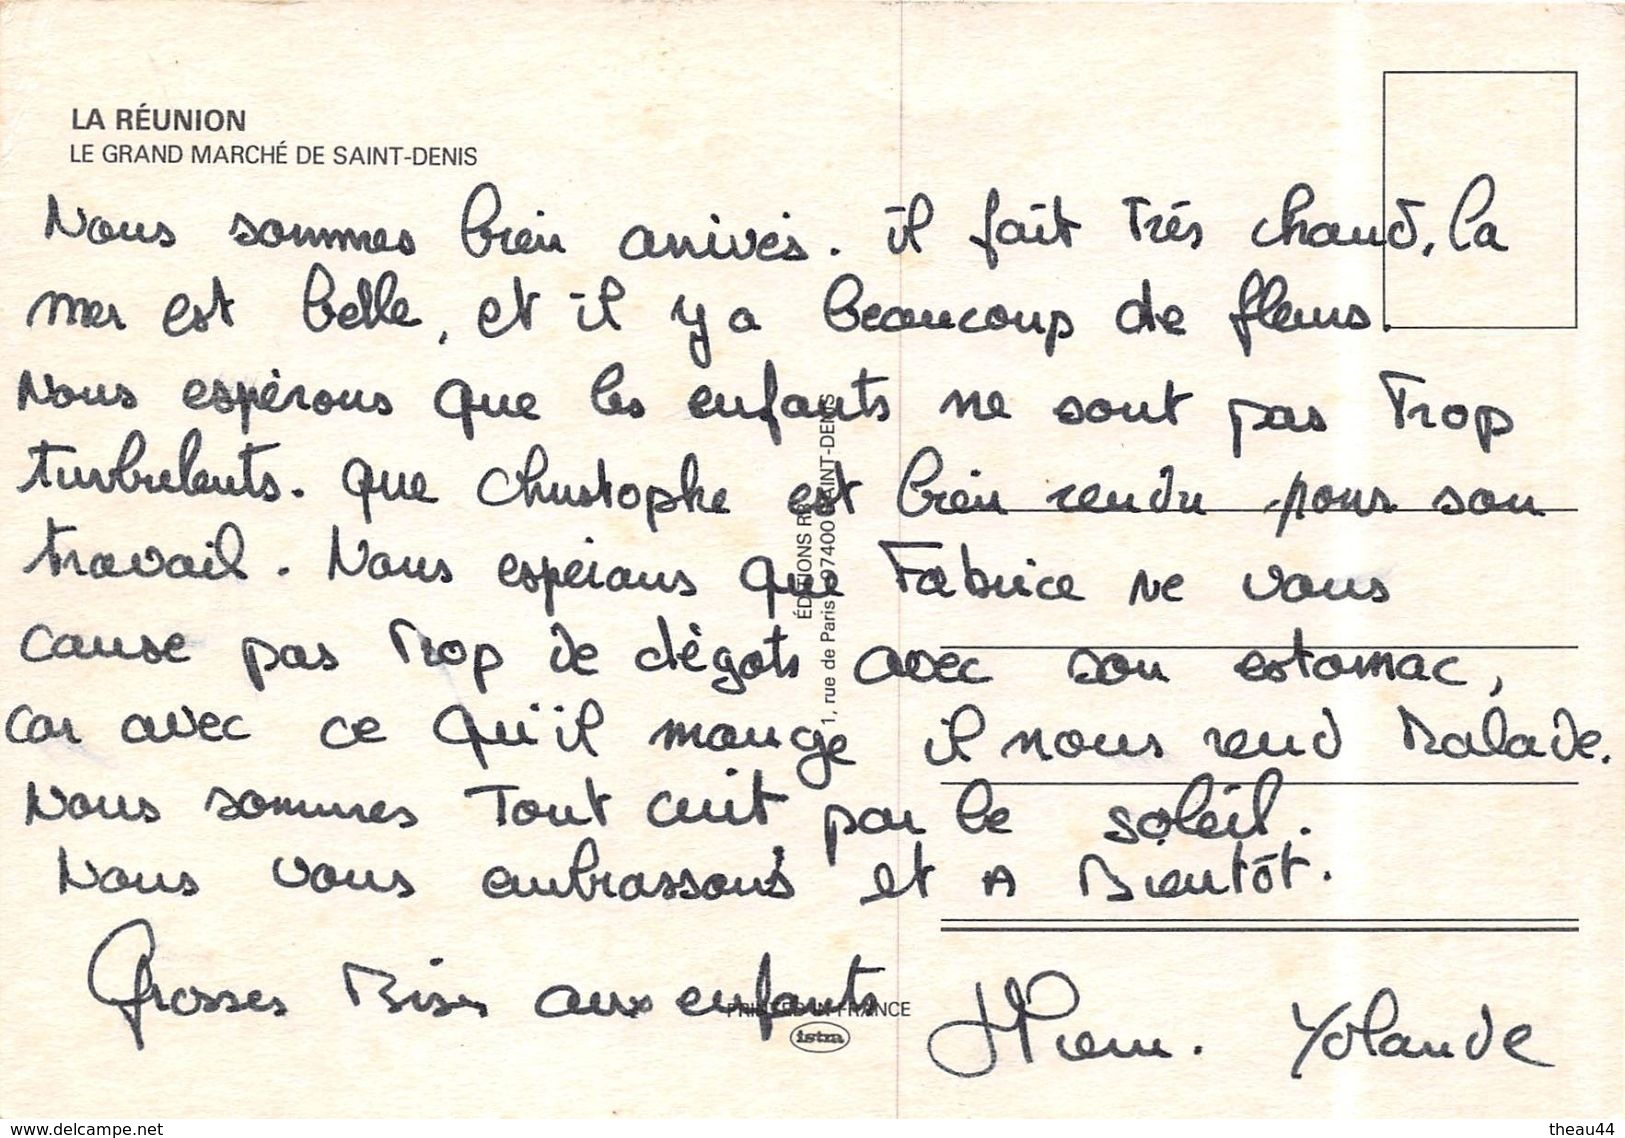 LA RÉUNION
LE GRAND MARCHÉ DE SAINT-DENIS
Nous sommes bien arrivés. il fait très chaud, la
mer est belle, et il y a beaucoup de fleurs.
Nous espérons que les enfants ne sont pas trop
turbulents. que christophe est bien rendu pour son
travail. Nous espérons que Fabrice ne vous
cause pas trop de dégots avec son estomac,
car avec ce qu'il mange il nous rend malade.
Nous sommes tout cuit par le soleil.
Nous vous embrassons et A Bientôt.
Grosses Bises aux enfants
Yolande
ÉDITIONS
1, rue de Paris 97400 SAINT-DENIS
PRINTED IN FRANCE
istra
www.delcampe.net
theau44